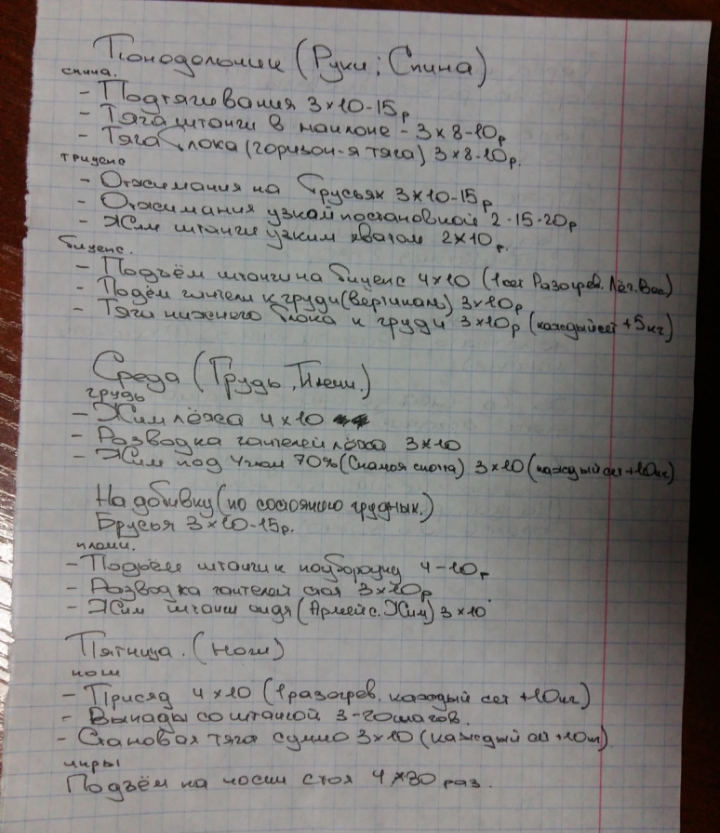 Понедельник (Руки; Спина)
спина.
- Подтягивания 3×10-15р
- Тяга штанги в наклоне - 3×8-10р
- Тяга блока (горизон-я тяга) 3×8-10р.
трицепс
- Отжимания на брусьях 3×10-15р
- Отжимания узкой постановкой 2-15-20р
- Жим штанги узким хватом 2×10р.
бицепс.
- Подъём штанги на бицепс 4×10 (1сет Разогрев. Лёг. Вес)
- Подём гантели к груди (вертикаль) 3×10р
- Тяги нижнего блока к груди 3×10р (каждый сет +5кг)
Среда (Грудь, Плечи.)
грудь
- Жим лёжа 4×10
- Разводка гантелей лёжа 3×10
- Жим под углом 70% (Скамья) 3×10 (каждый сет +10кг)
На добивку (по состоянию грудных.)
Брусья 3×10-15р.
плечи.
- Подъём штанги к подбородку 4-10р
- Разводка гантелей стоя 3×10р
- Жим штанги сидя (Армейс. Жим) 3×10
Пятница. (Ноги)
ноги
- Присяд 4×10 (1разогрев. каждый сет +10кг)
- Выпады со штангой 3-20шагов.
- Становая тяга сумо 3×10 (каждый сет +10кг)
икры
Подъём на носки стоя 4×30 раз.